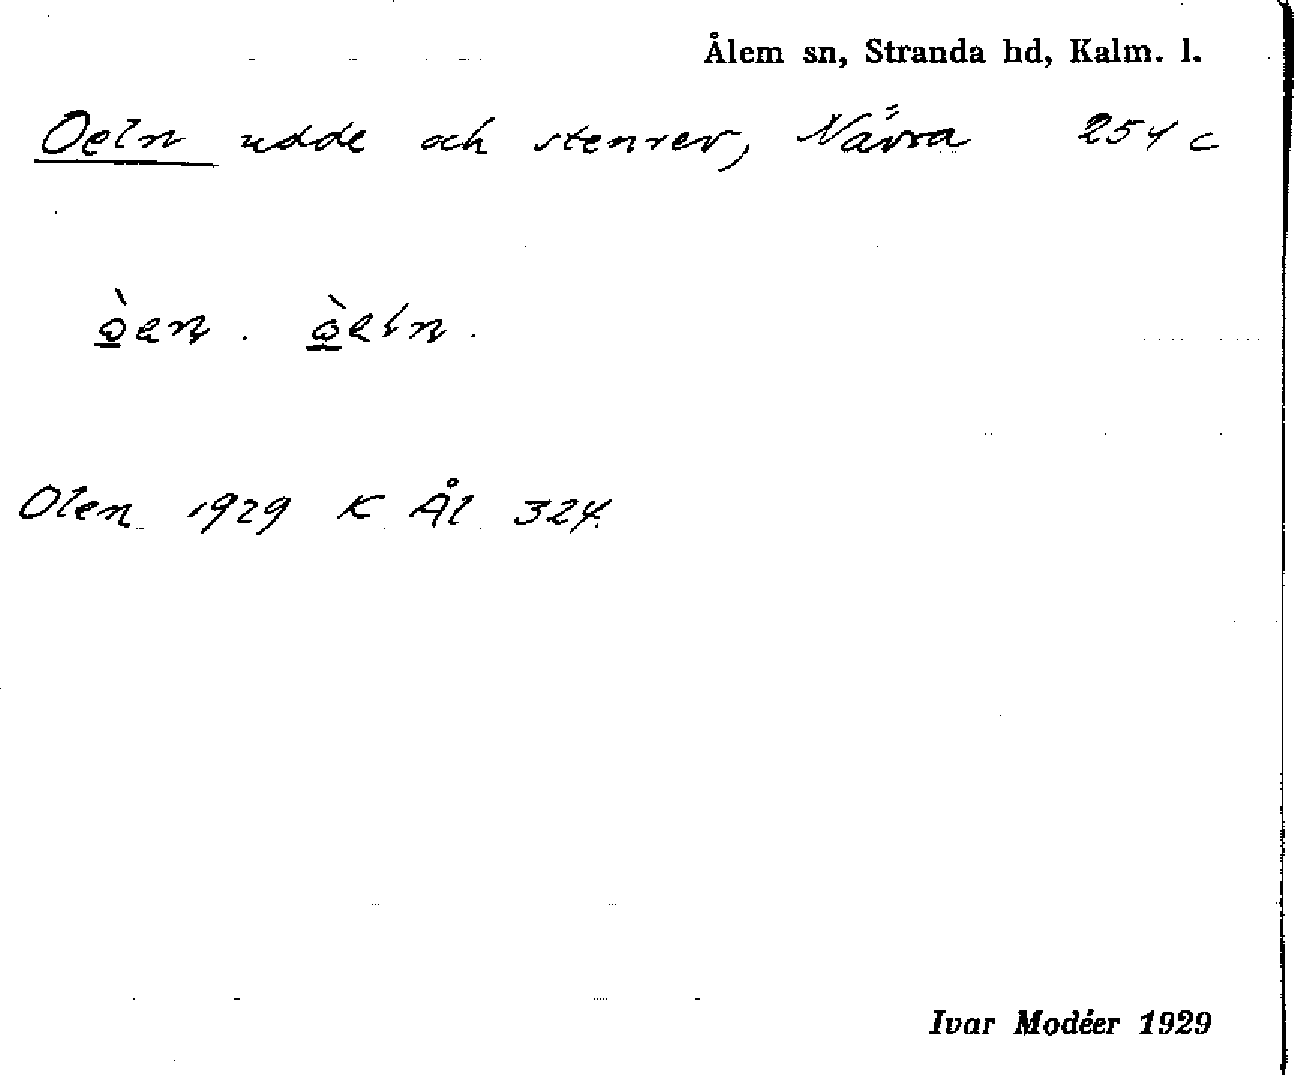 Ålem sn, Stranda hd, Kalm. l.
Oeln udde och stenrev, Nävra 254 c
Olen 1929 K Ål 324.
Ivar Modéer 1929